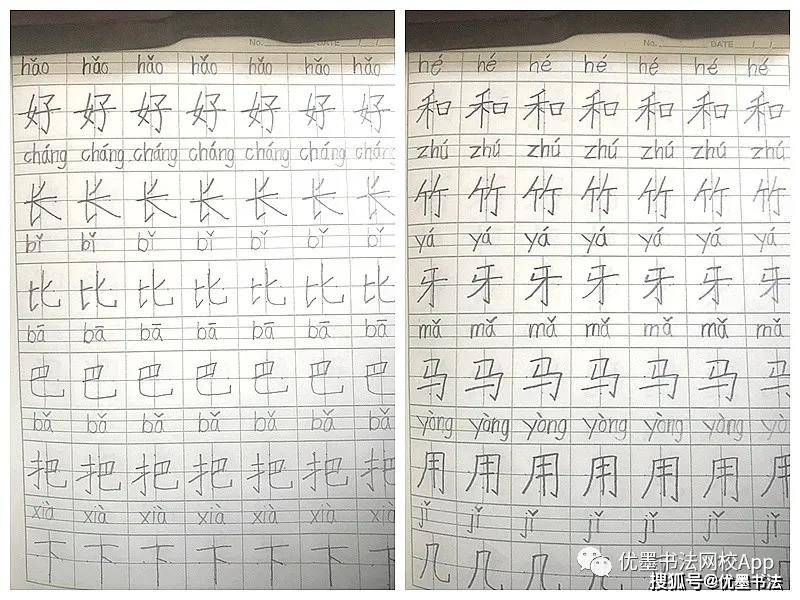 No. DATE / /
hǎo hǎo hǎo hǎo hǎo hǎo hǎo
好 好 好 好 好 好 好
cháng cháng cháng cháng cháng cháng cháng
长 长 长 长 长 长 长
bǐ bǐ bǐ bǐ bǐ bǐ bǐ
比 比 比 比 比 比 比
bā bā bā bā bā bā bā
巴 巴 巴 巴 巴 巴 巴
bǎ bǎ bǎ bǎ bǎ bǎ bǎ
把 把 把 把 把 把 把
xià xià xià xià xià xià xià
下 下 下 下 下 下 下
No. DATE / /
hé hé hé hé hé hé hé
和 和 和 和 和 和 和
zhú zhú zhú zhú zhú zhú zhú
竹 竹 竹 竹 竹 竹 竹
yá yá yá yá yá yá yá
牙 牙 牙 牙 牙 牙 牙
mǎ mǎ mǎ mǎ mǎ mǎ mǎ
马 马 马 马 马 马 马
yòng yòng yòng yòng yòng yòng yò
用 用 用 用 用 用 用
jǐ jǐ jǐ jǐ jǐ jǐ jǐ
几 几 几 几
优墨书法网校App
搜狐号@优墨书法